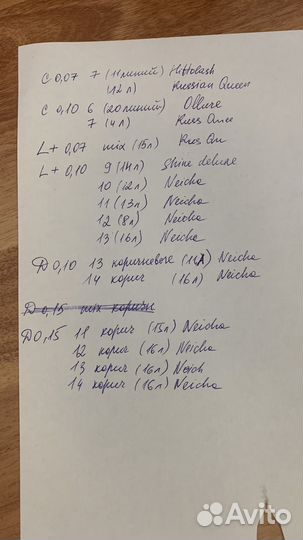 C 0,07 7 (11 линий) Hiftolash
(12 л) Russian Queen
C 0,10 6 (20 линий) Ollure
7 (4 л) Russ Queen
L+ 0,07 mix (15 л) Rus Qu
L+ 0,10 9 (14 л) Shine deluxe
10 (12 л) Neicha
11 (13 л) Neicha
12 (8 л) Neicha
13 (16 л) Neicha
D 0,10 13 коричневые (16 л) Neicha
14 корич (16 л) Neicha
D 0,15 mix коричн
D 0,15 11 корич (15 л) Neicha
12 корич (16 л) Neicha
13 корич (16 л) Neich
14 корич (16 л) Neicha
Avito